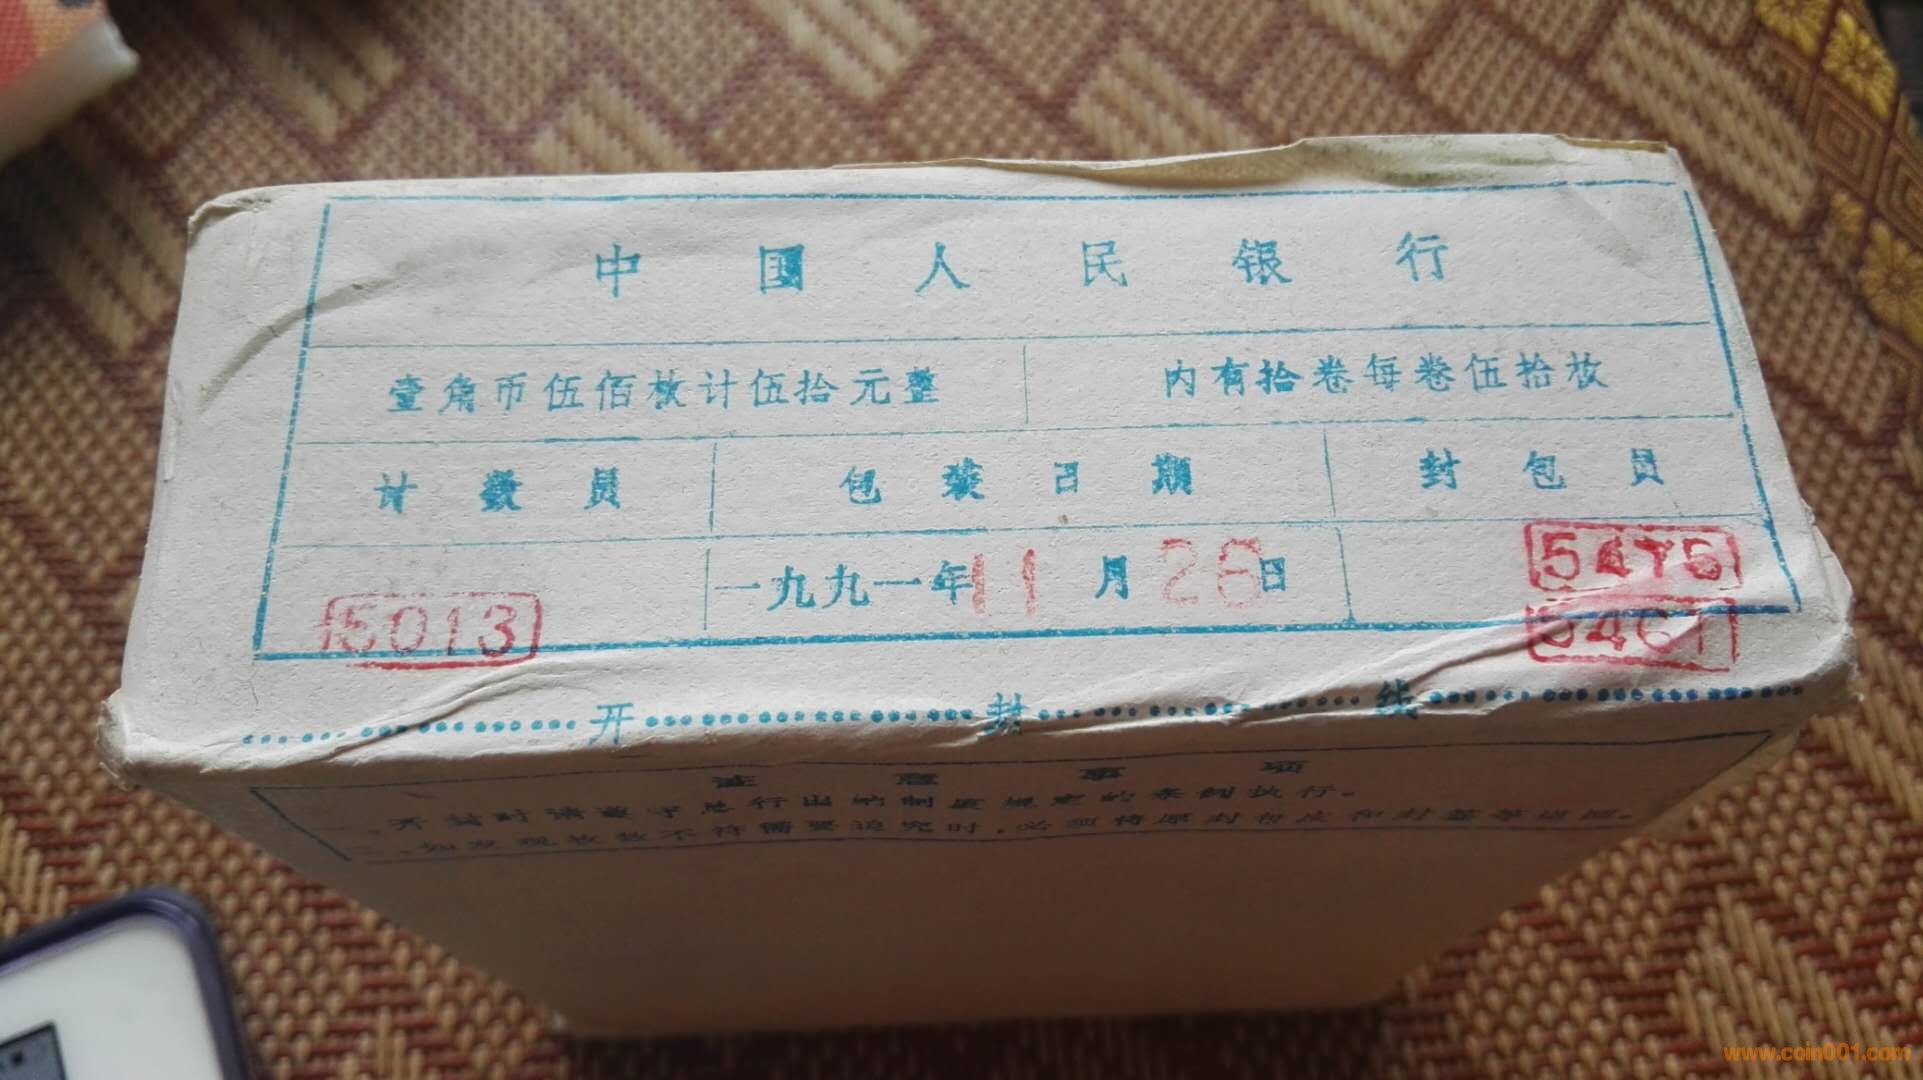 中国人民银行
壹角币伍佰枚计伍拾元整 内有拾卷每卷伍拾枚
计数员 包装日期 封包员
一九九一年11月26日
5013 5475
5461
开封线
注意事项
一、开封时请遵守总行出纳制度规定的条例执行。
二、如发现枚数不符需要追究时，必须将原封包皮和封签
www.coin001.com